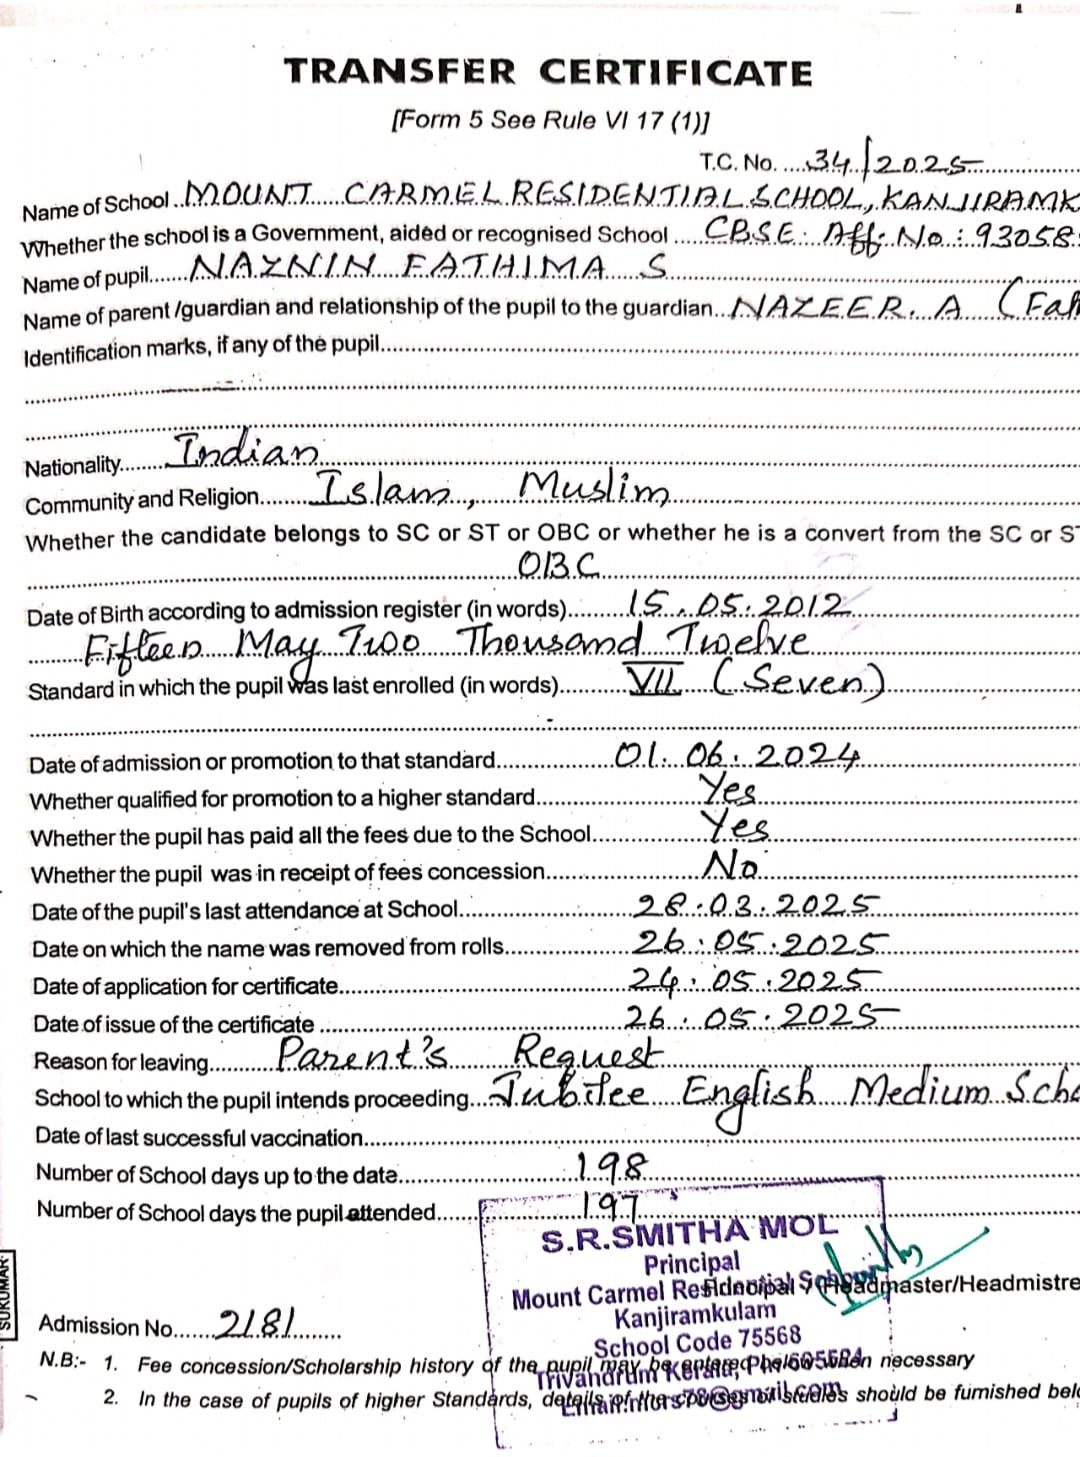 TRANSFER CERTIFICATE
[Form 5 See Rule VI 17 (1)]
T.C. No. ....34/2025
Name of School ..MOUNT CARMEL RESIDENTIAL SCHOOL, KANJIRAMK
Whether the school is a Government, aided or recognised School ..... CBSE. Aff. No : 93058
Name of pupil...... NAZNIN FATHIMA S
Name of parent /guardian and relationship of the pupil to the guardian.. NAZEER. A (Fath
Identification marks, if any of the pupil....
Nationality...... Indian
Community and Religion........ Islam, Muslim
Whether the candidate belongs to SC or ST or OBC or whether he is a convert from the SC or ST
OBC
Date of Birth according to admission register (in words)...... 15.05.2012
Fifteen May Two Thousand Twelve
Standard in which the pupil was last enrolled (in words)...... VII (Seven)
Date of admission or promotion to that standard...... 01.06.2024
Whether qualified for promotion to a higher standard...... Yes
Whether the pupil has paid all the fees due to the School...... Yes
Whether the pupil was in receipt of fees concession...... No
Date of the pupil's last attendance at School...... 28.03.2025
Date on which the name was removed from rolls...... 26.05.2025
Date of application for certificate...... 24.05.2025
Date of issue of the certificate ...... 26.05.2025
Reason for leaving...... Parent's Request
School to which the pupil intends proceeding... Jubilee English Medium Scho
Date of last successful vaccination......
Number of School days up to the date...... 198
Number of School days the pupil attended...... 197
S.R.SMITHA MOL
Principal
Mount Carmel Residential School
Principal
Headmaster/Headmistre
Kanjiramkulam
School Code 75568
SUKUMAR
Admission No...... 2181
N.B:- 1. Fee concession/Scholarship history of the pupil may be entered when necessary
Trivandrum Kerala,
2. In the case of pupils of higher Standards, details of the course of studies should be furnished belo